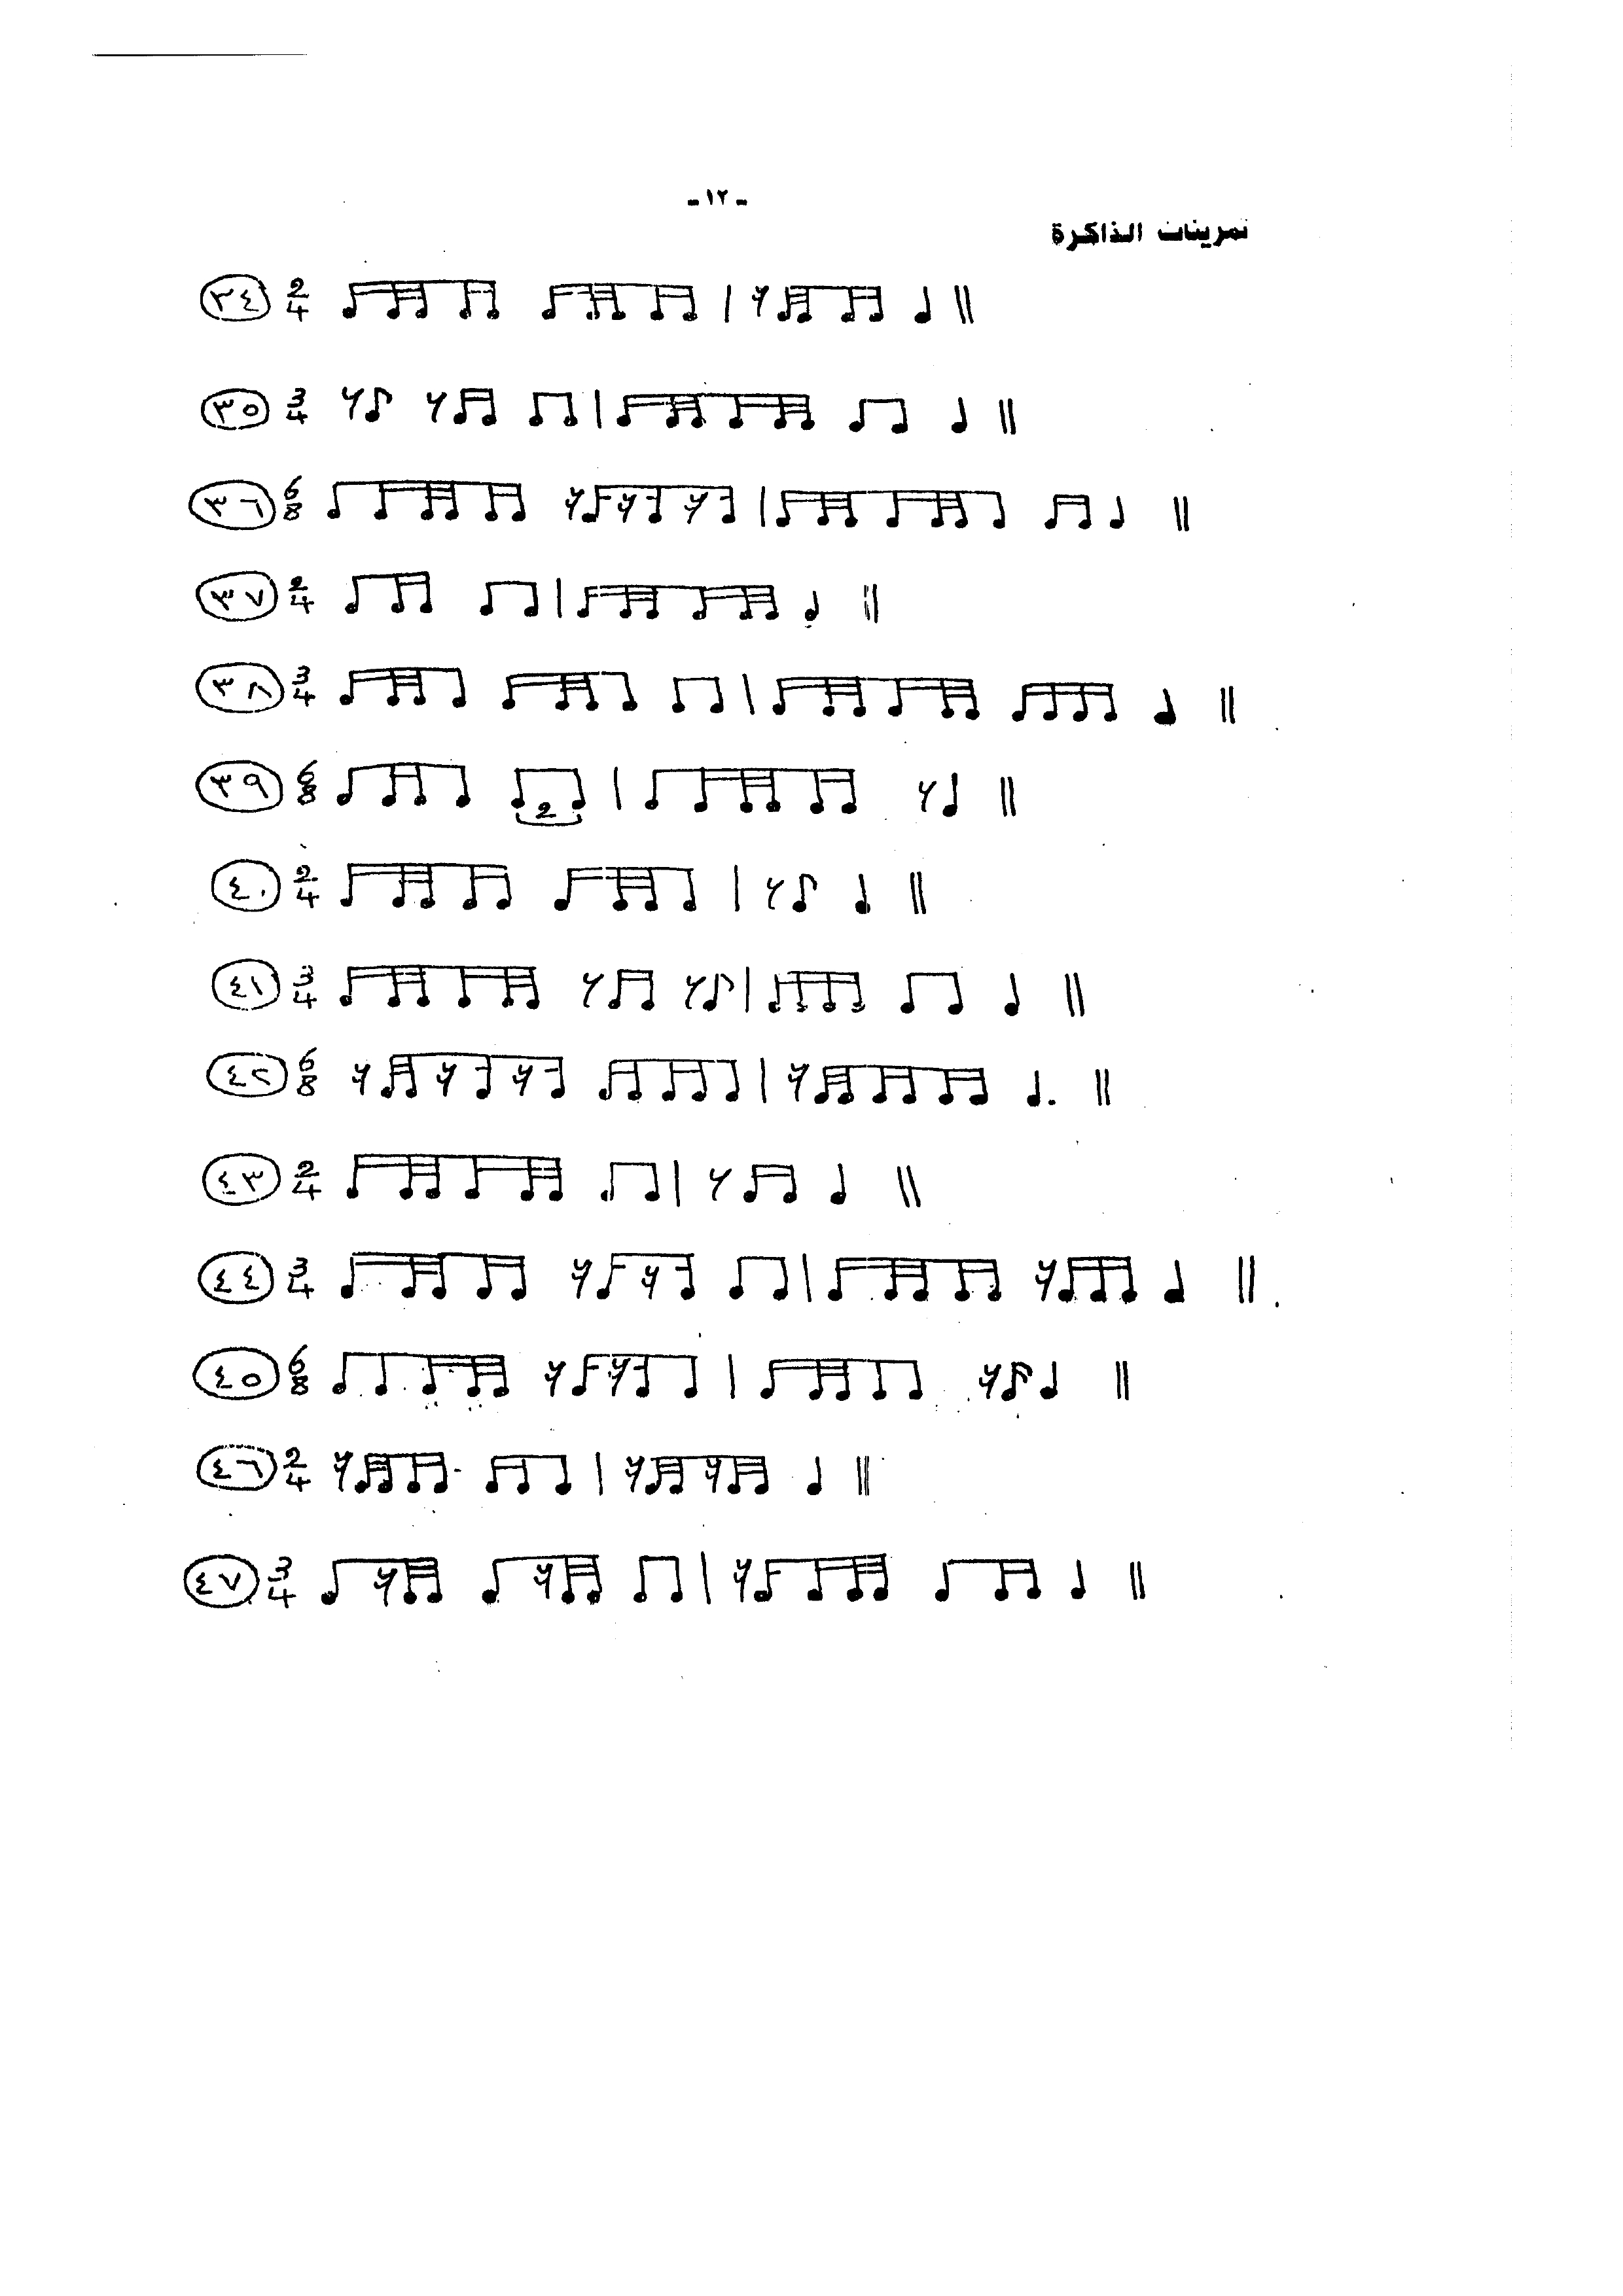 - ١٢ -
تمرينات الذاكرة
٣٤ 2/4
٣٥ 3/4
٣٦ 6/8
٣٧ 2/4
٣٨ 3/4
٣٩ 6/8 2
٤٠ 2/4
٤١ 3/4
٤٢ 6/8
٤٣ 2/4
٤٤ 3/4
٤٥ 6/8
٤٦ 2/4
٤٧ 3/4